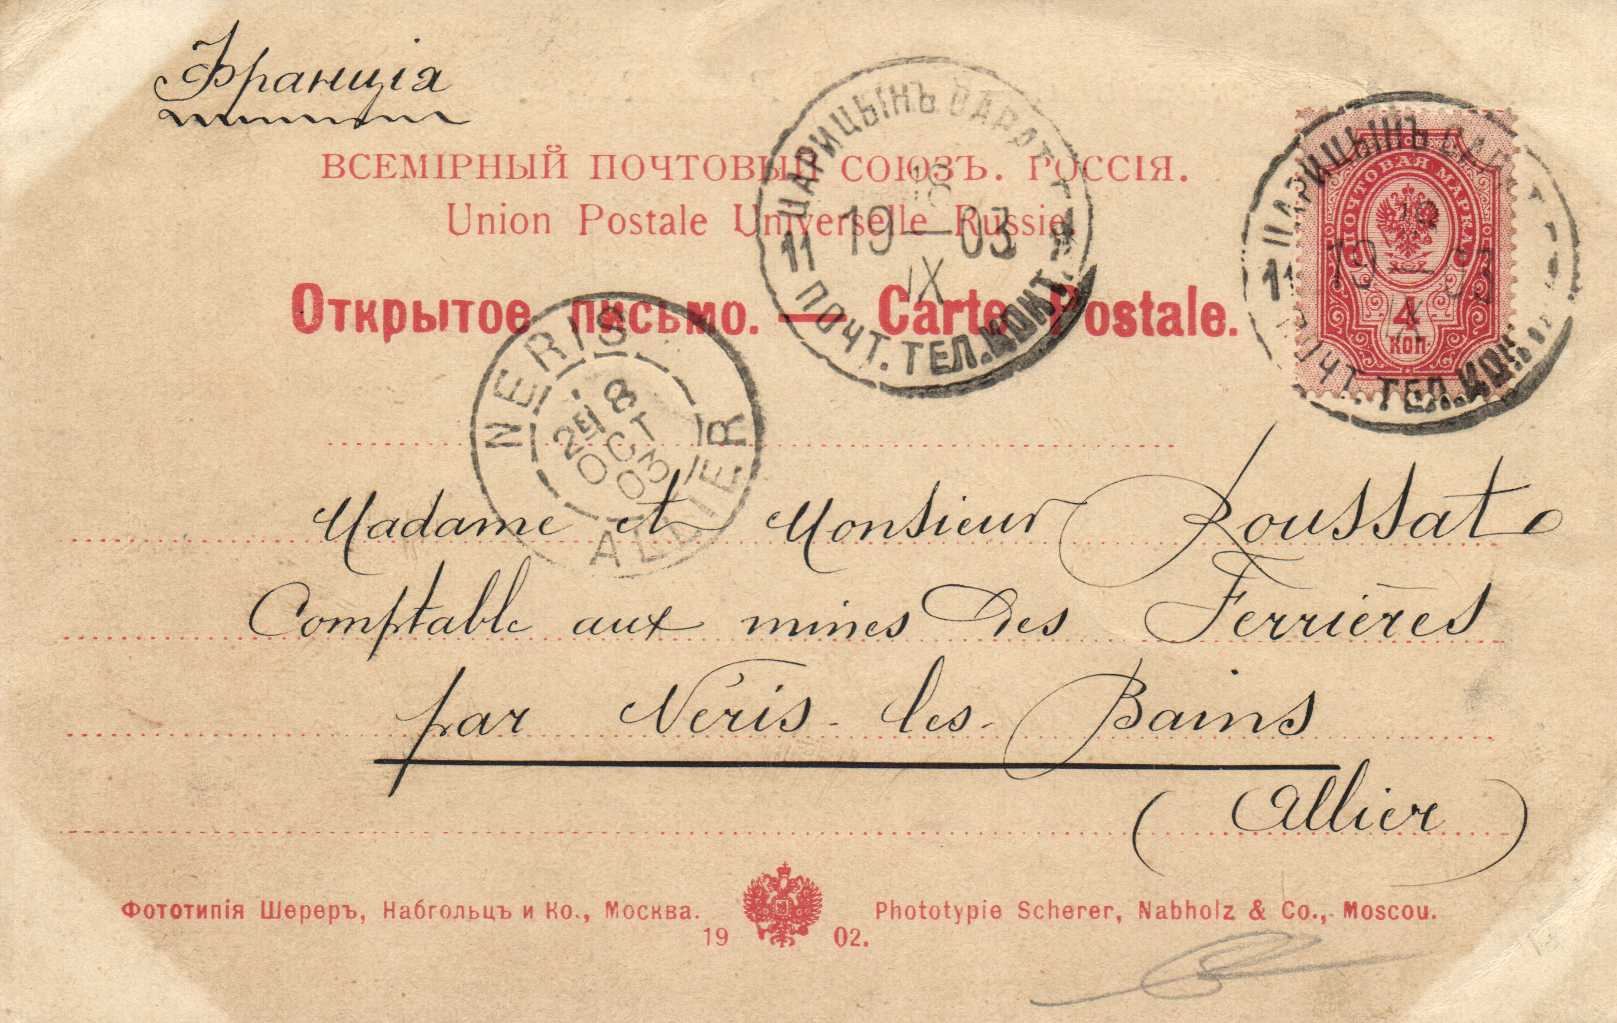 Франція
ВСЕМІРНЫЙ ПОЧТОВЫЙ СОЮЗЪ. РОССІЯ.
Union Postale Universelle Russie.
Открытое письмо. — Carte Postale.
ЦАРИЦЫНЪ САРАТ. Г.
18
11 19 — 03 Я
IX
ПОЧТ. ТЕЛ. КОНТ.
ПОЧТОВАЯ МАРКА
4
КОП.
ЦАРИЦЫНЪ САРАТ. Г.
18
11 19 03
IX
ПОЧТ. ТЕЛ. КОН
NERIS
2E 8
OCT
03
ALLIER
Madame et Monsieur Roussat
Comptable aux mines des Ferrières
par Néris-les-Bains
(Allier)
Фототипія Шереръ, Набгольцъ и Ко., Москва.
Phototypie Scherer, Nabholz & Co., Moscou.
19 02.